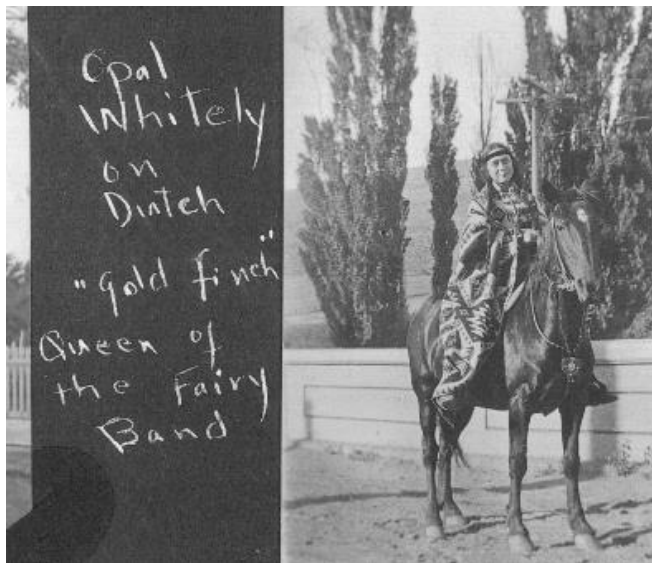 Opal
Whitely
on
Dutch
"Gold finch"
Queen of
the Fairy
Band